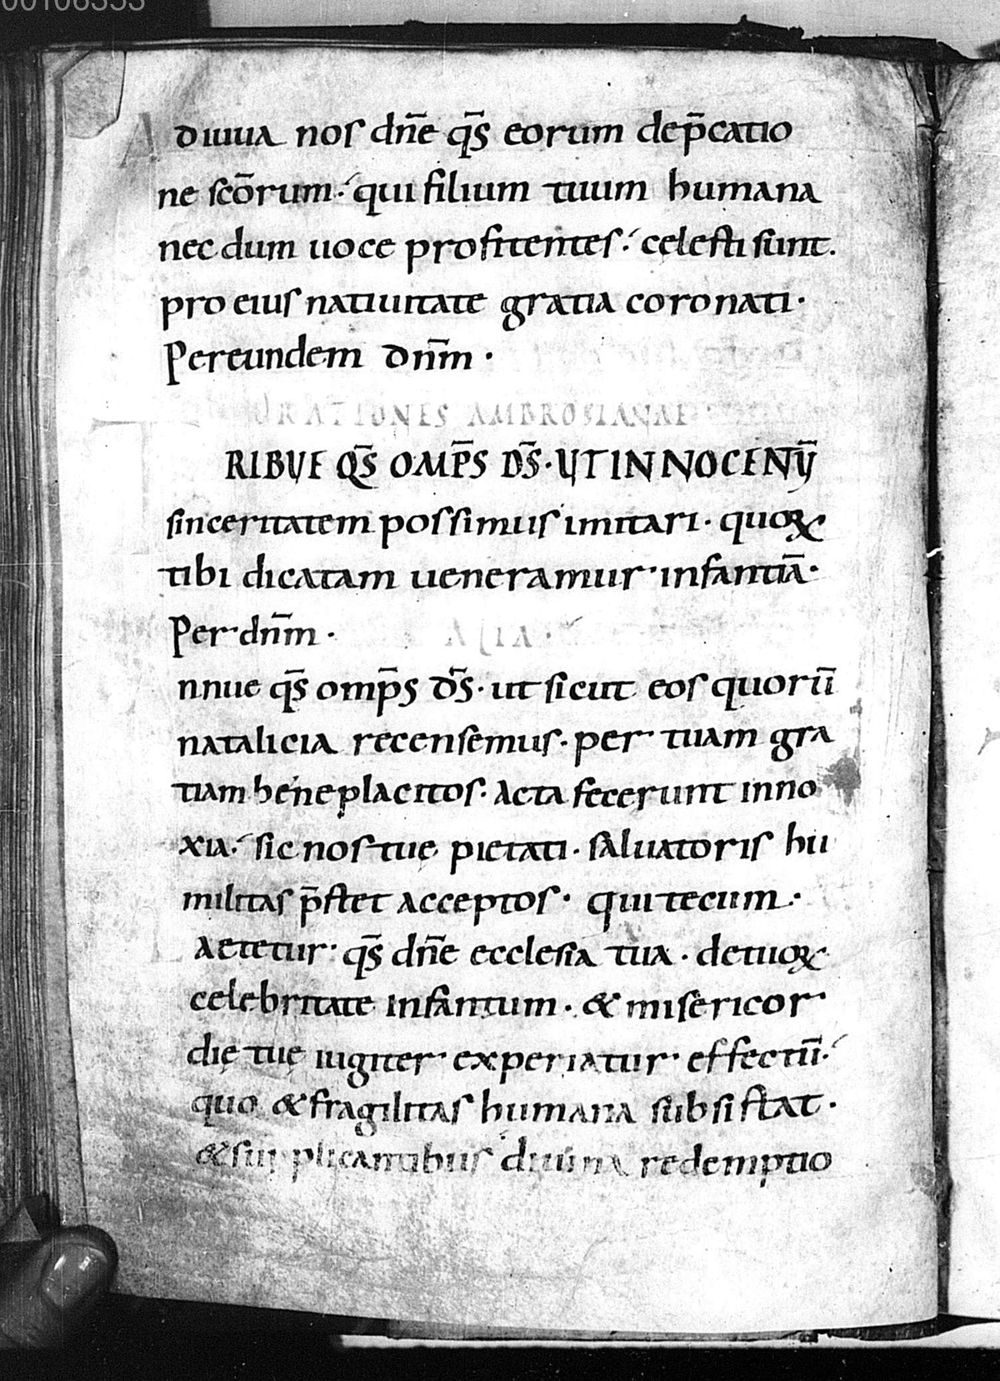 00106353
A diuua nos dn̄e q̄s eorum dep̄catio
ne scōrum· qui filium tuum humana
necdum uoce profitentes· celesti sunt.
pro eius natiuitate gratia coronati·
Per eundem dn̄m·
ORATIONES AMBROSIANAE
TRIBUE Q̄S OMP̄S D̄S· UT INNOCENTŪ
sinceritatem possimus imitari· quoꝝ
tibi dicatam ueneramur infantiā·
Per dn̄m· ALIA·
nnue q̄s omp̄s d̄s· ut sicut eos quorū
natalicia recensemus· per tuam gra
tiam beneplacitos· acta fecerunt inno
xia· sic nos tuę pietati· saluatoris hu
militas p̄stet acceptos· qui tecum·
Laetetur· q̄s dn̄e ecclesia tua· de tuoꝝ
celebritate infantum· & misericor
dię tuę iugiter experiatur effectū·
quo & fragilitas humana subsistat·
& supplicantibus diuina redemptio